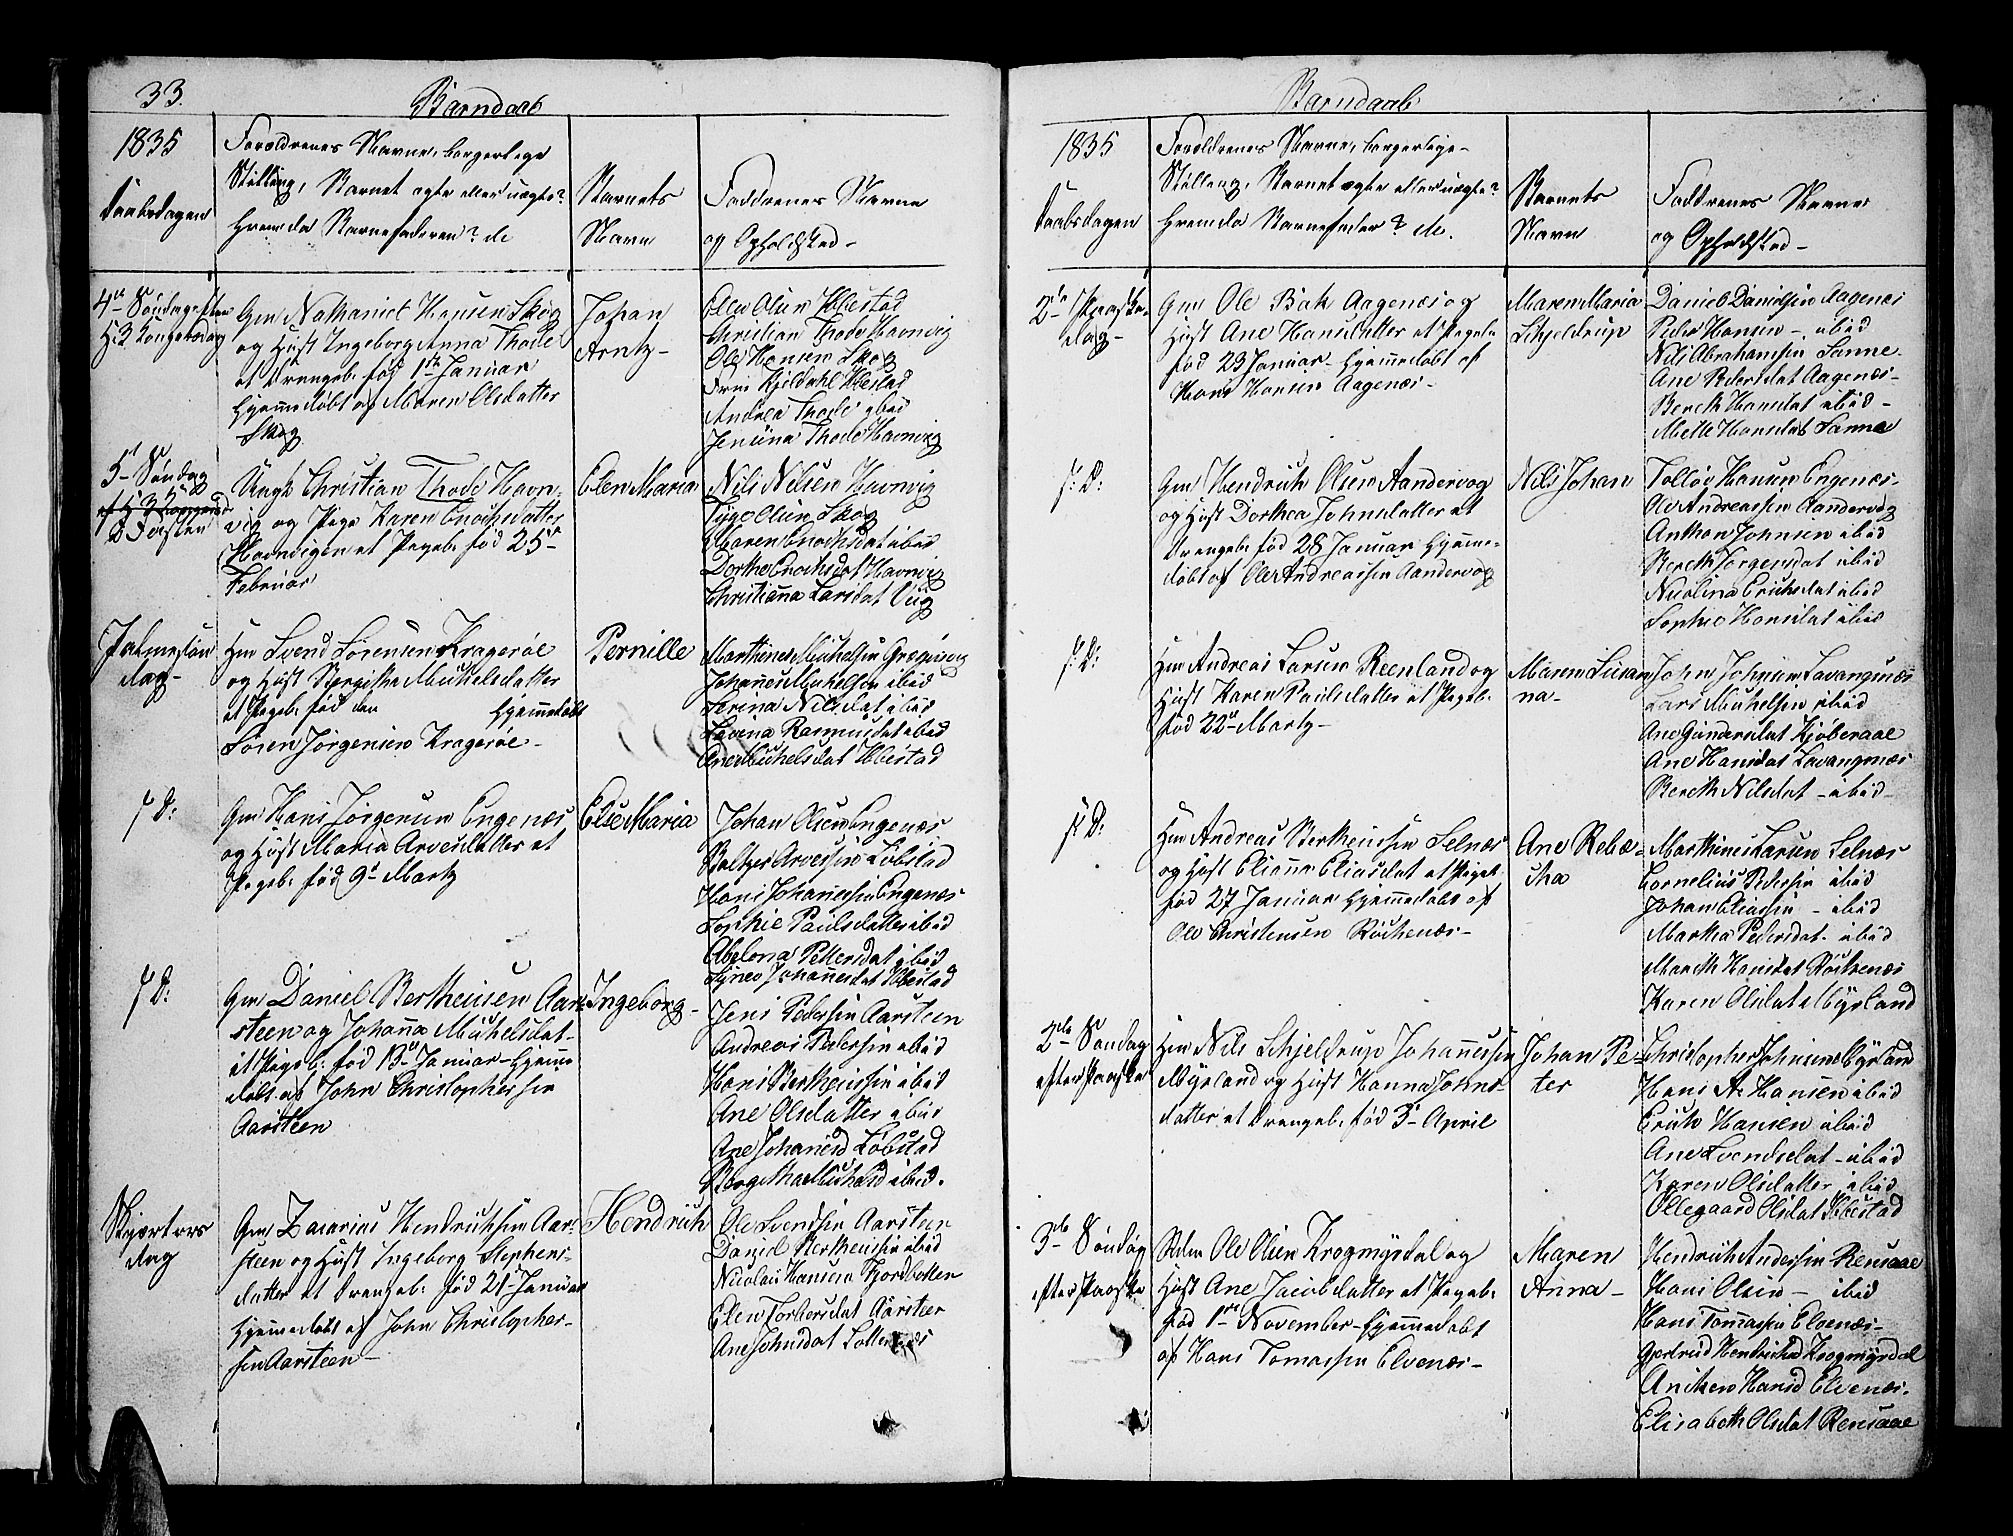 33.
Barndaab
1835
Daabsdagen
Forældrenes Navne, borgerlige
Stilling, Barnet ægte eller uægte?
Hvem da Barnefaderen? &c
Barnets
Navn
Faddrenes Navne
og Opholdsted
4de Søndag efter
H: 3 Kongersdag
Gm Nathaniel Hansen Skog
og Hust Ingeborg Anna Thode
et Drengeb. fød 1ste Januar
hjemmedøbt af Maren Olsdatter
Skog
Johan
Arntz
Elen Olsen Ibbestad
Christian Thode Havnvig
Ole Hansen Skog
Fru Kjeldahl Ibestad
Andrea Thode ibid
Jensina Thode Havnvig
5te Søndag
i Fasten
Ungk Christian Thode Havn-
vig og Pige Karen Enochsdatter
Havnvigen et Pigeb. fød 25de
Februar
Elen Maria
Nils Nilsen Havnvig
Tyge Olsen Skog
Maren Enochsdat ibid
Dorthe Enochsdat Havnvig
Christianna Larsdat Vug
Palmesøn
dag
Hm Svend Sørensen Kragerøe
og Hust Bergitha Michelsdatter
et Pigeb. fød den hjemmedøbt
Søren Jørgensen Kragerøe
Pernille
Marthines Michelsen Gregusvig
Johannes Michelsen ibid
Serina Nilsdat ibid
Lovina Rasmusdat ibid
Ane Michelsdat Ibbestad
s: D:
Gm Hans Jørgensen Engenæs
og Hust Maria Arvesdatter et
Pigeb. fød 9de Martz
Else Maria
Johan Olsen Engenæs
Baltzer Arvesen Løbstad
Hans Johannesen Engenæs
Sophie Paulsdatter ibid
Abelona Pettersdat ibid
Synev Johannesdat Ibbestad
s: D:
Gm Daniel Bertheusen Aar-
steen og Johanna Michelsdat-
et Pigeb. fød 13de Januar hjemme
døbt af John Christophersen
Aarsteen
Ingeborg
Jens Pedersen Aarsteen
Andreas Pedersen ibid
Hans Berthensen ibid
Ane Olsdatter ibid
Ane Johannesd Løbstad
Borgitha Michelsd ibid.
Skjærtors
dag
Gm Zacarias Hendrichsen Aar-
steen og Hust Ingeborg Stephens-
datter et Drengeb. fød 21de Januar
hjemmedøbt af John Christopher-
sen Aarsteen
Hendrich
Ole Svendsen Aarsteen
Daniel Berthensen ibid
Nicolai Hansen Fjordbotten
Elen Torbersdat Aarsteen
Ane Johnsdat
Barndaab
1835
Daabsdagen
Forældrenes Navne, borgerlige
Stilling, Barnet ægte eller uægte?
Hvem da Barnefader? &c.
Barnets
Navn
Faddrenes Navne
og Opholdsted
2den Paaske
dag
Gm Ole Bak Aagenæs og
Hust Ane Hansdatter et Pigeb.
fød 23 Januar hjemmedøbt af
Hans Hansen Aagenæs
Maren Maria
Schjeldrup
Daniel Danielsen Aagenæs
Peder Hansen ibid
Nils Abrahamsen Sanne
Ane Pedersdat Aagenæs
Bereth Hansdat ibid
Mette Hansdat Sanne
s: D:
Gm Hendrich Olsen Aandervog
og Hust Dorthea Johnsdatter et
Drengeb. fød 28 Januar hjemme-
døbt af Ole Andreassen Aandervog
Nils Johan
Tollev Hansen Engenæs
Ole Andreassen Aandervog
Anthon Johnsen ibid
Bereth Jørgensdat ibid
Nicolina Erichsdat ibid
Sophie Hansdat ibid
s: D:
Hm Andreas Larsen Reenland og
Hust Karen Paulsdatter et Pigeb.
fød 22de Martz
Maren Susan
na
John Johnsen Lavangnæs
Lars Michelsen ibid
Ane Gunarsdat Kjøberaae
Ane Hansdat Lavangnæs
Bereth Nilsdat ibid
s: D:
Hm Andreas Berthensen Selnæs
og Hust Elianna Eliasdat et Pigeb.
fød 27 Januar hjemmedøbt af
Ole Christensen Rochenæs
Ane Rebæ-
cha
Marthines Larsen Selnæs
Cornelius Pedersen ibid
Johan Eliassen ibid
Martha Pedersdat ibid
Mareth Hansdat Rochenæs
Karen Olsdat Myrland
2den Søndag
efter Paaske
Hm Nils Schjeldrup Johannessen
Myrland og Hust Hanna Johns-
datter et Drengeb. fød 3de April
Johan Pe-
ter
Christopher Johnsen Myrland
Hans A. Hansen ibid
Erich Hansen ibid
Ane Svendsdat ibid
Karen Olsdatter ibid
Ollegaard Olsdat Ibbestad
3die Søndag
efter Paaske
Ole Olsen Krogmyrdal og
Hust Ane Jacobsdatter et Pigeb.
fød 1ste November hjemmedøbt
af Hans Tomassen Elvenæs
Maren
Anna
Hendrich Andersen Rensaae
Hans Olsen ibid
Hans Tomassen Elvenæs
Gjertrud Hendrichsd Krogmyrdal
Anichen Hansd Elvenæs
Elisabeth Olsdat Rensaae